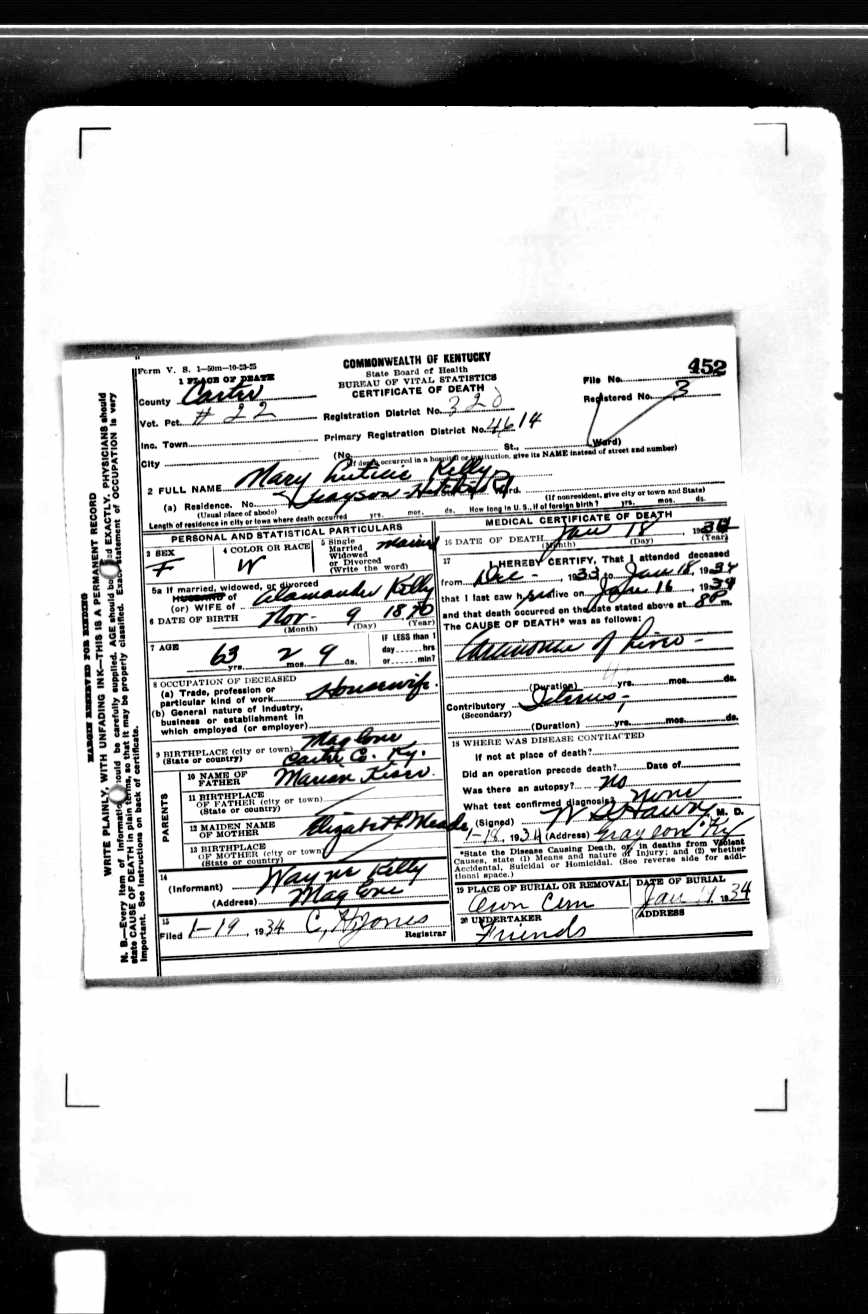 Form V. S. 1—50m—10-23-25
COMMONWEALTH OF KENTUCKY
State Board of Health
BUREAU OF VITAL STATISTICS
CERTIFICATE OF DEATH
452
File No.
Registered No. 3
1 PLACE OF DEATH
County Carter
Vot. Pct. # 22
Registration District No.
Inc. Town
Primary Registration District No. 4614
City
(No. St., Ward)
(If death occurred in a hospital or institution, give its NAME instead of street and number)
2 FULL NAME Mary Kelly
(a) Residence. No. Grayson Ward.
(Usual place of abode)
(If nonresident, give city or town and State)
Length of residence in city or town where death occurred yrs. mos. ds. How long in U. S., if of foreign birth? yrs. mos. ds.
PERSONAL AND STATISTICAL PARTICULARS
3 SEX F
4 COLOR OR RACE W
5 Single Married Widowed or Divorced (Write the word) Married
5a If married, widowed, or divorced
HUSBAND of
(or) WIFE of Kelly
6 DATE OF BIRTH Nov- 9 1870
(Month) (Day) (Year)
7 AGE 63 yrs. 2 mos. 9 ds.
IF LESS than 1 day hrs or min?
8 OCCUPATION OF DECEASED
(a) Trade, profession or particular kind of work Housewife.
(b) General nature of Industry, business or establishment in which employed (or employer)
9 BIRTHPLACE (city or town) Maglone
(State or country) Carter Co. Ky.
PARENTS
10 NAME OF FATHER Marion
11 BIRTHPLACE OF FATHER (city or town)
(State or country)
12 MAIDEN NAME OF MOTHER Elizabeth Meade
13 BIRTHPLACE OF MOTHER (city or town)
(State or country)
14
(Informant) Wayne Kelly
(Address) Maglone
15
Filed 1-19, 1934 C, H Jones
Registrar
MEDICAL CERTIFICATE OF DEATH
16 DATE OF DEATH Jan 18, 1934
(Month) (Day) (Year)
17 I HEREBY CERTIFY, That I attended deceased
from Dec-, 1933, to Jan 18, 1934
that I last saw h alive on Jan 16, 1934
and that death occurred on the date stated above at 8P m.
The CAUSE OF DEATH* was as follows:
Carcinoma of Liver-
(Duration) yrs. mos. ds.
Contributory
(Secondary)
(Duration) yrs. mos. ds.
18 WHERE WAS DISEASE CONTRACTED
If not at place of death?
Did an operation precede death? Date of
Was there an autopsy? no
What test confirmed diagnosis? none
(Signed) M. D.
1-18, 1934 (Address) Grayson Ky
*State the Disease Causing Death, or, in deaths from Violent
Causes, state (1) Means and nature of Injury; and (2) whether
Accidental, Suicidal or Homicidal. (See reverse side for addi-
tional space.)
19 PLACE OF BURIAL OR REMOVAL
Own Cem
DATE OF BURIAL
Jan 1934
20 UNDERTAKER
Friends
ADDRESS
MARGIN RESERVED FOR BINDING
WRITE PLAINLY, WITH UNFADING INK—THIS IS A PERMANENT RECORD
N. B.—Every item of information should be carefully supplied. AGE should be stated EXACTLY. PHYSICIANS should
state CAUSE OF DEATH in plain terms, so that it may be properly classified. Exact statement of OCCUPATION is very
important. See instructions on back of certificate.